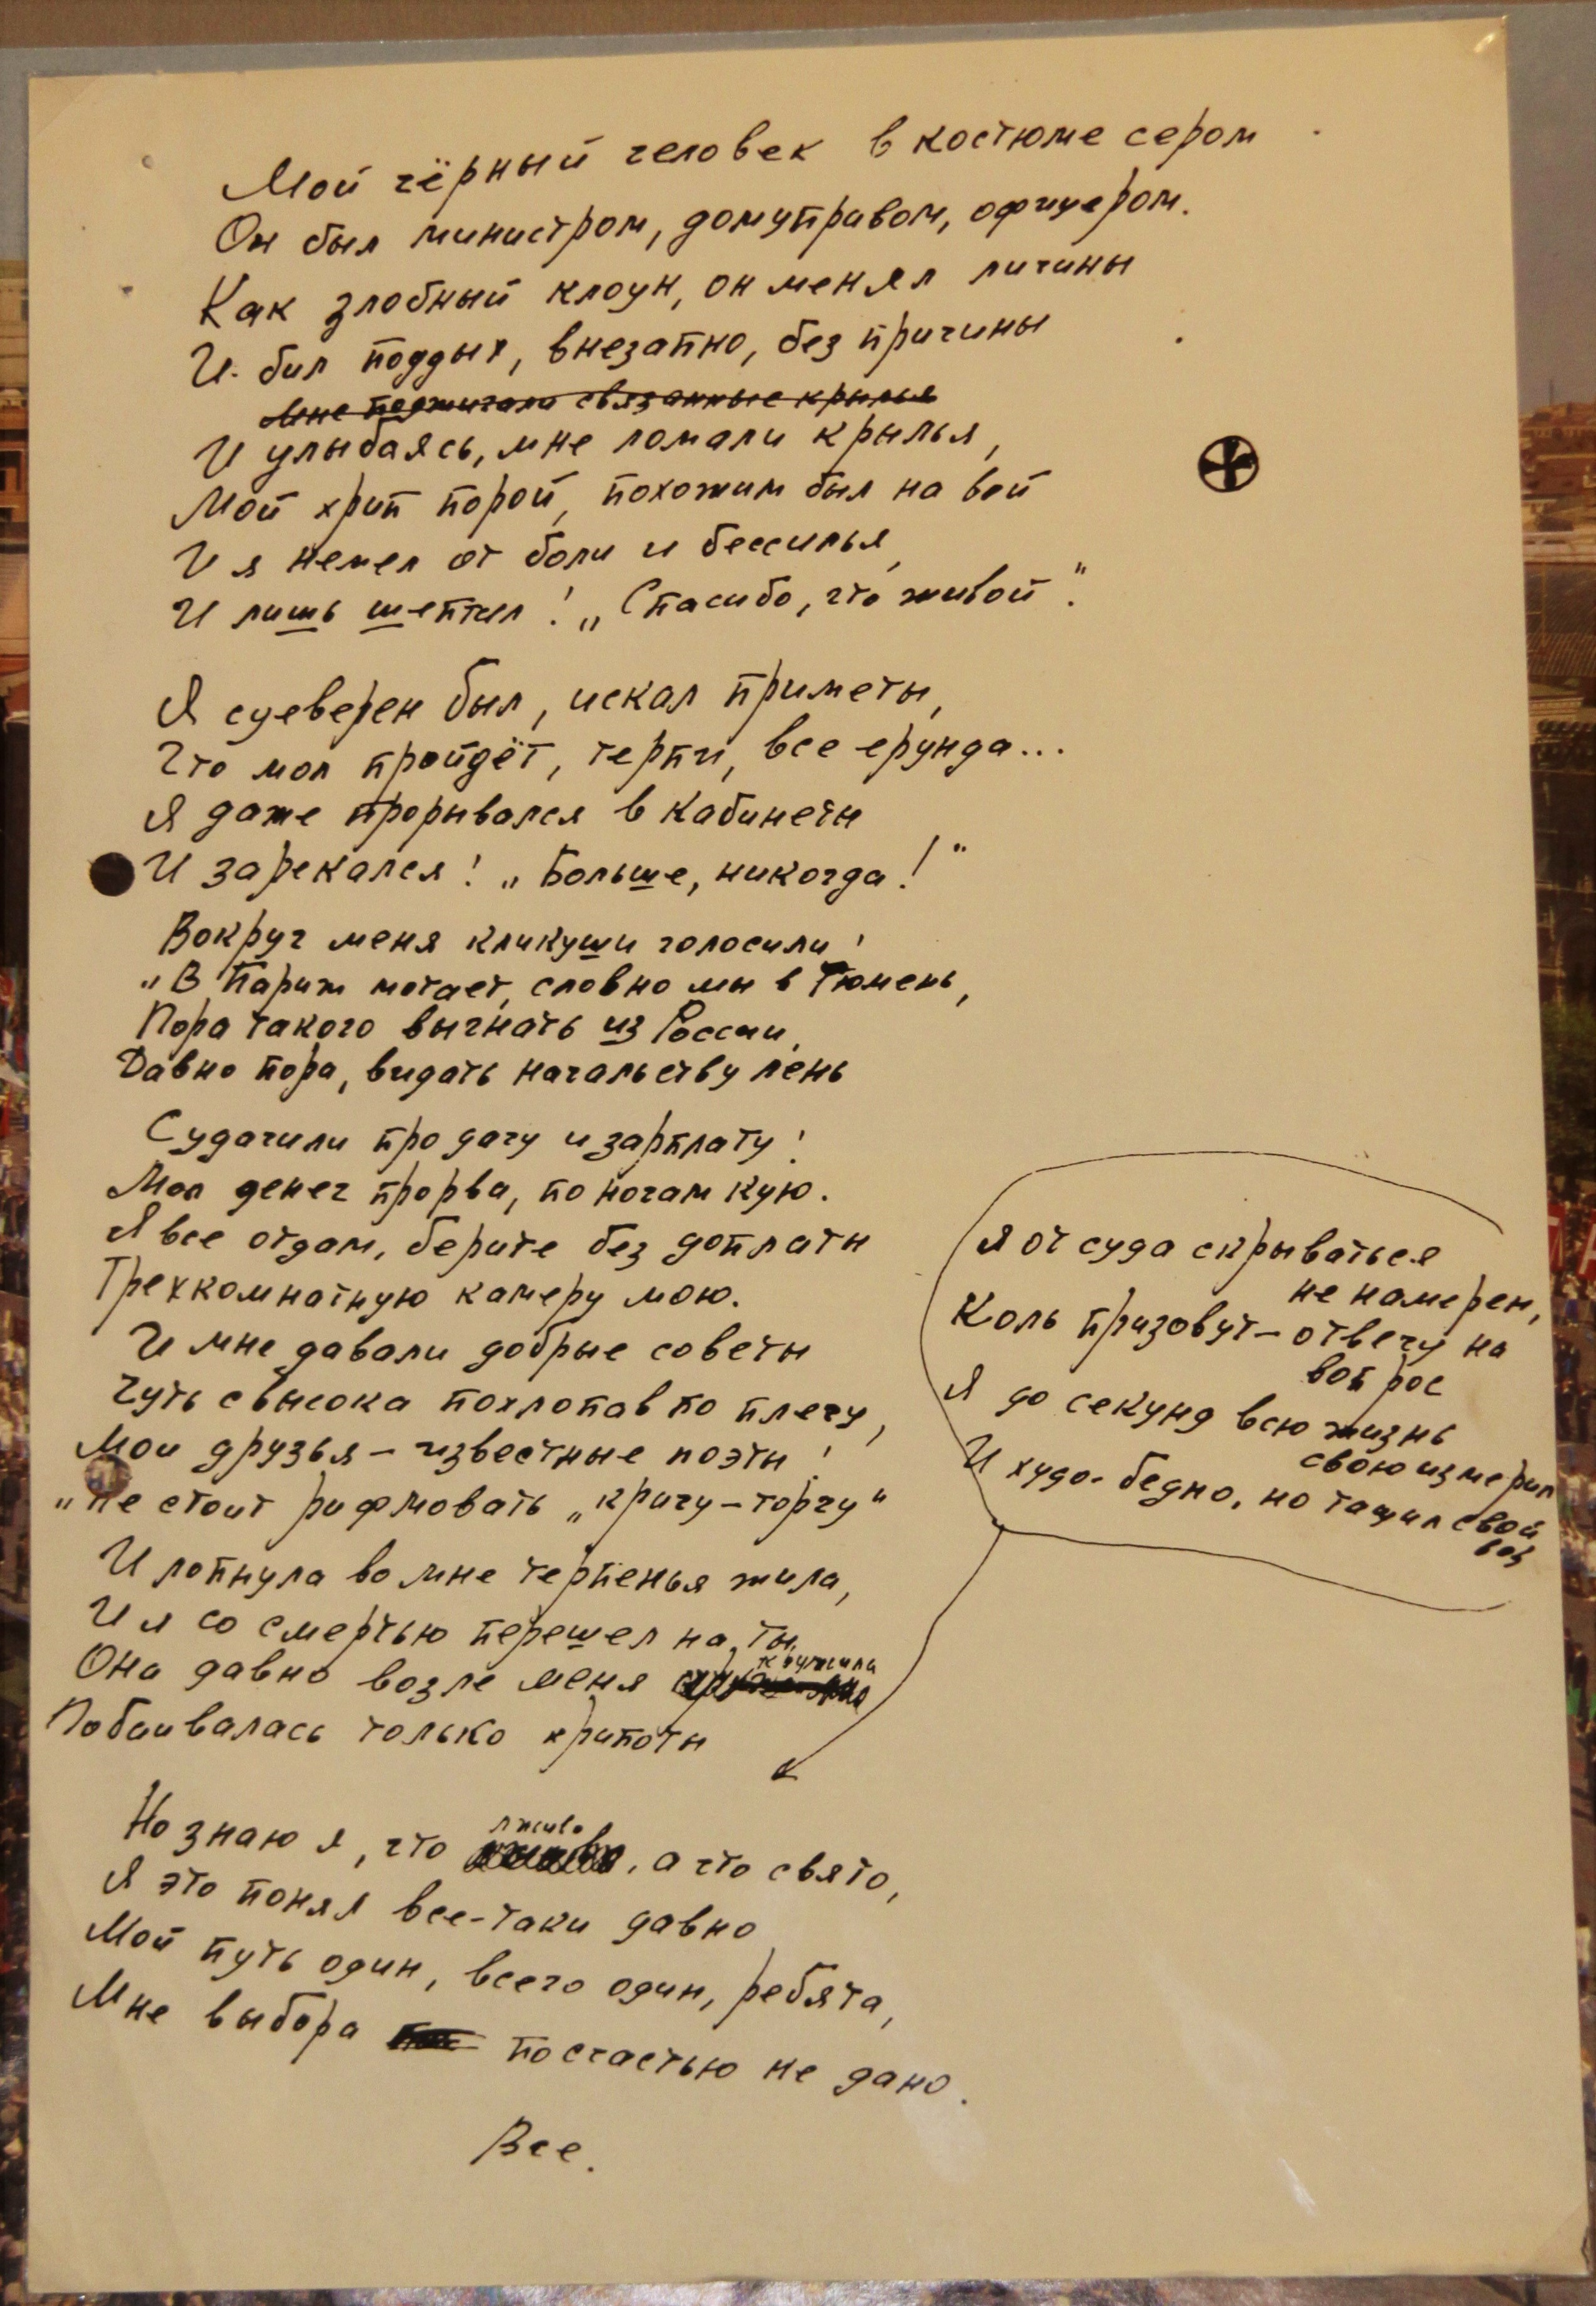 Мой чёрный человек в костюме сером
Он был министром, домуправом, офицером.
Как злобный клоун, он менял личины
И бил поддых, внезапно, без причины
Мне поджигали связанные крылья
И улыбаясь, мне ломали крылья,
Мой хрип порой, похожим был на вой
И я немел от боли и бессилья,
И лишь шептал! „Спасибо, что живой".
Я суеверен был, искал приметы,
Что мол пройдёт, терпи, все ерунда...
Я даже прорывался в кабинеты
И зарекался! „Больше, никогда!"
Вокруг меня кликуши голосили!
„В Париж мотает, словно мы в Тюмень,
Пора такого выгнать из России,
Давно пора, видать начальству лень
Судачили про дачу и зарплату!
Мол денег прорва, по ночам кую.
Я все отдам, берите без доплаты
Трехкомнатную камеру мою.
И мне давали добрые советы
Чуть свысока похлопав по плечу,
Мои друзья – известные поэты!
„Не стоит рифмовать „кричу – торчу"
И лопнула во мне терпенья жила,
И я со смертью перешел на ты,
Она давно возле меня кружила
Побаивалась только хрипоты
Я от суда скрываться
не намерен,
Коль призовут – отвечу на
вопрос
Я до секунд всю жизнь
свою измерил
И худо-бедно, но тащил свой
воз
Но знаю я, что лживо, а что свято,
Я это понял все-таки давно
Мой путь один, всего один, ребята,
Мне выбора по счастью не дано.
Все.